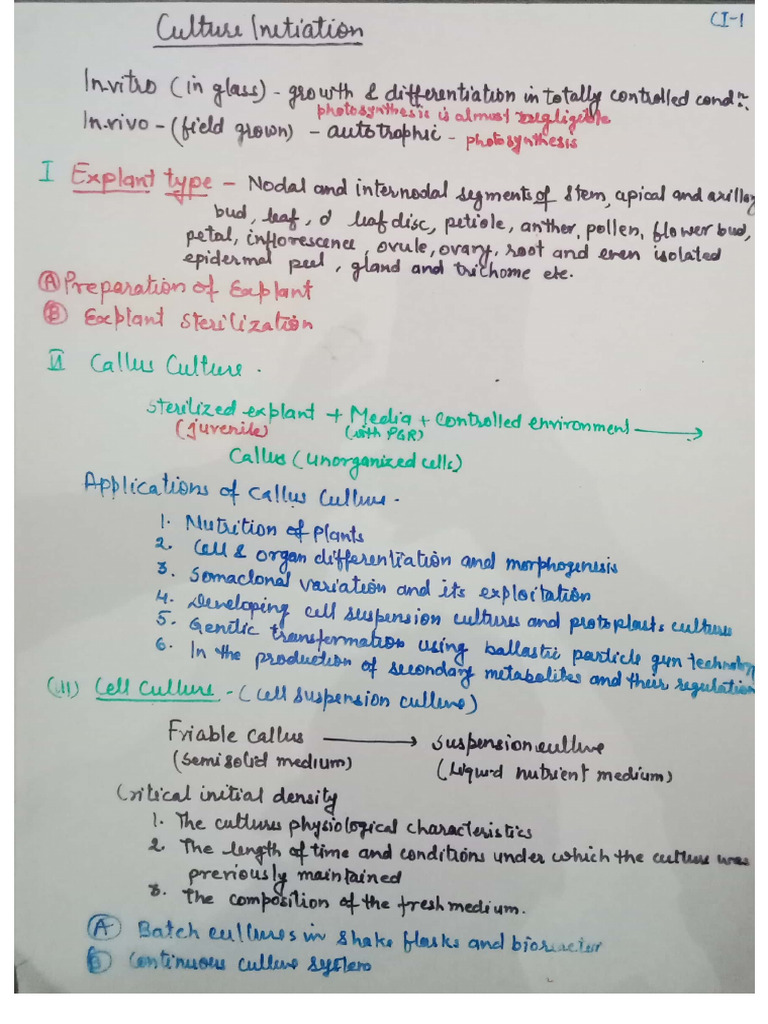 CI-1
Culture Initiation
In.vitro (in glass) - growth & differentiation in totally controlled condn.
photosynthesis is almost negligible
In.vivo - (field grown) - autotrophic - photosynthesis
I Explant type - Nodal and internodal segments of stem, apical and axillary
bud, leaf, leaf disc, petiole, anther, pollen, flower bud,
petal, inflorescence, ovule, ovary, root and even isolated
epidermal peel, gland and trichome etc.
(A) Preparation of Explant
(B) Explant Sterilization
II Callus Culture.
Sterilized explant + Media + controlled environment →
(juvenile) (with PGR)
Callus (unorganized cells)
Applications of callus culture.
1. Nutrition of Plants
2. Cell & organ differentiation and morphogenesis
3. Somaclonal variation and its exploitation
4. Developing cell suspension cultures and protoplasts cultures
5. Genetic transformation using ballastic particle gun technology
6. In the production of secondary metabolites and their regulation
(III) Cell Culture - (cell suspension culture)
Friable callus → suspension culture
(Semi solid medium) (Liquid nutrient medium)
Critical initial density
1. The cultures physiological characteristics
2. The length of time and conditions under which the culture was
previously maintained
3. The composition of the fresh medium.
(A) Batch cultures in shake flasks and bioreactor
(B) Continuous culture system